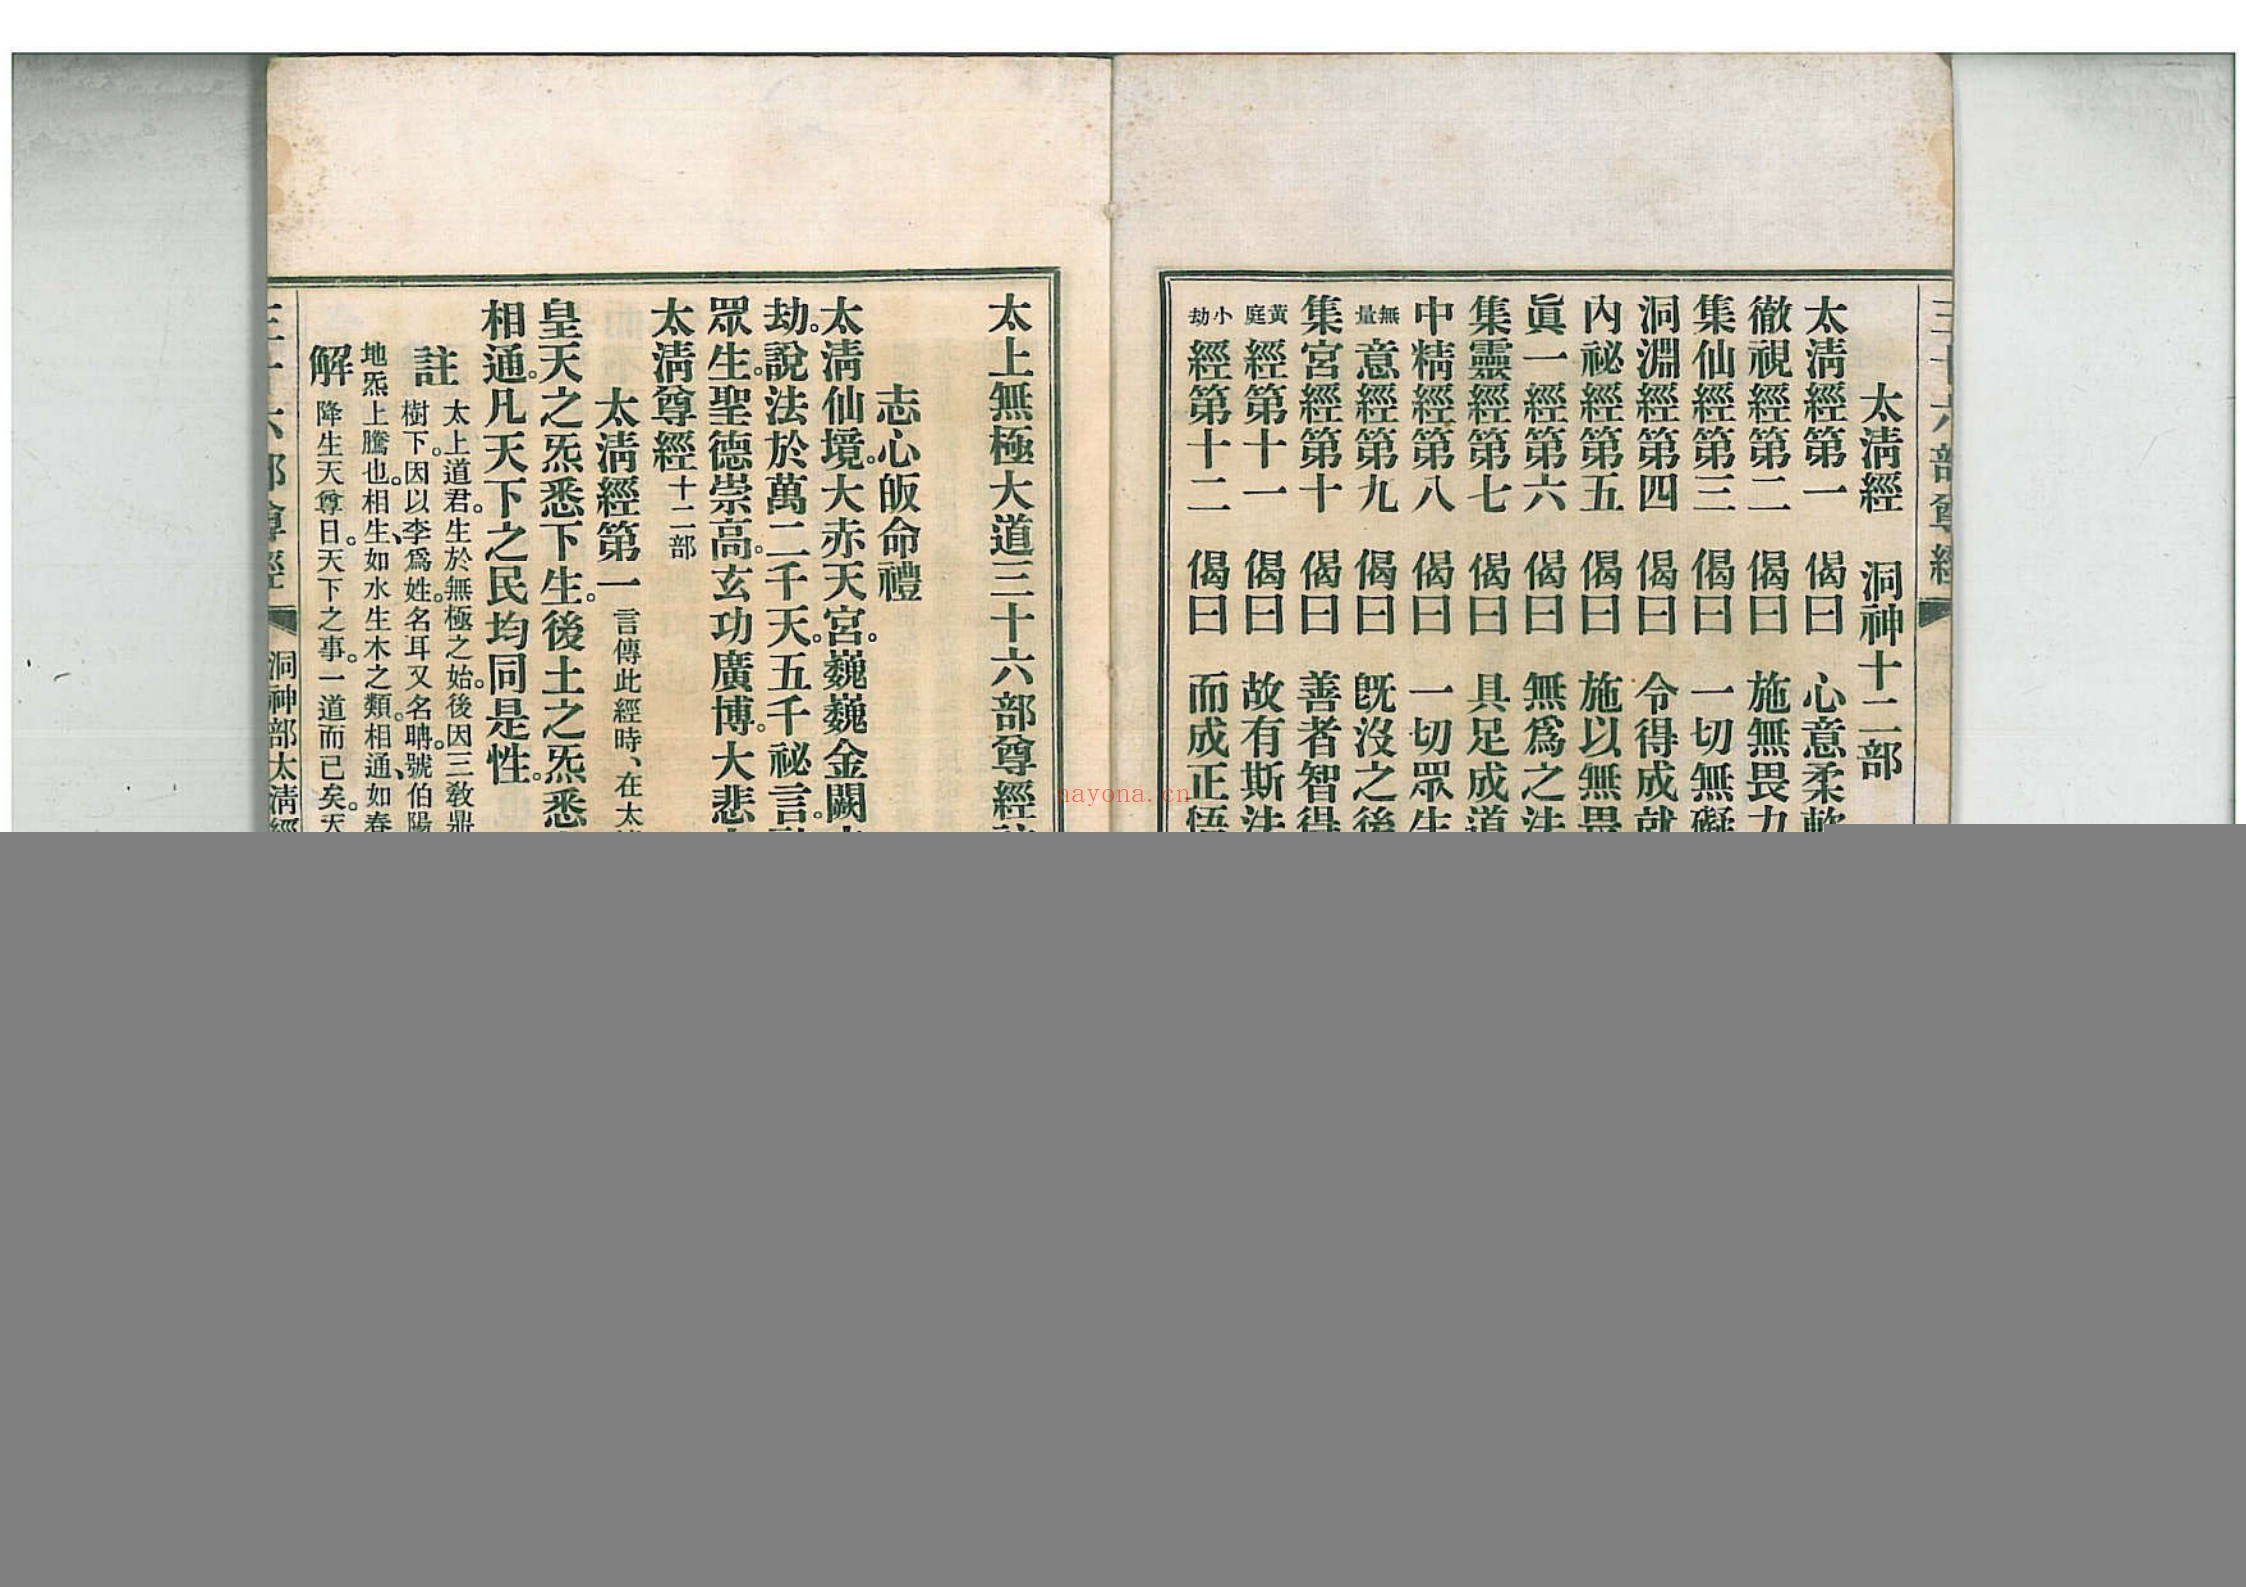 三十六部尊經
太淸經　洞神十二部
太淸經第一　偈曰　心意柔軟
徹視經第二　偈曰　施無畏力
集仙經第三　偈曰　一切無礙
洞淵經第四　偈曰　令得成就
內祕經第五　偈曰　施以無畏
眞一經第六　偈曰　無爲之法
集靈經第七　偈曰　具足成道
中精經第八　偈曰　一切眾生
無量意經第九　偈曰　旣沒之後
集宮經第十　偈曰　善者智得
黃庭經第十一　偈曰　故有斯法
小劫經第十二　偈曰　而成正悟
太上無極大道三十六部尊經
志心皈命禮
太淸仙境。大赤天宮。巍巍金闕
劫。說法於萬二千天。五千祕言。
眾生。聖德崇高。玄功廣博。大悲
太淸尊經十二部
太淸經第一　言傳此經時、在太
皇天之炁悉下生。后土之炁悉
相通。凡天下之民均同是性。
註　太上道君。生於無極之始。後因三敎
樹下。因以李爲姓。名耳又名聃。號伯陽
地炁上騰也。相生、如水生木之類。相通、如春
解　降生天尊曰。天下之事。一道而已矣。天
三十六部尊經　洞神部太淸經
nayona.cn